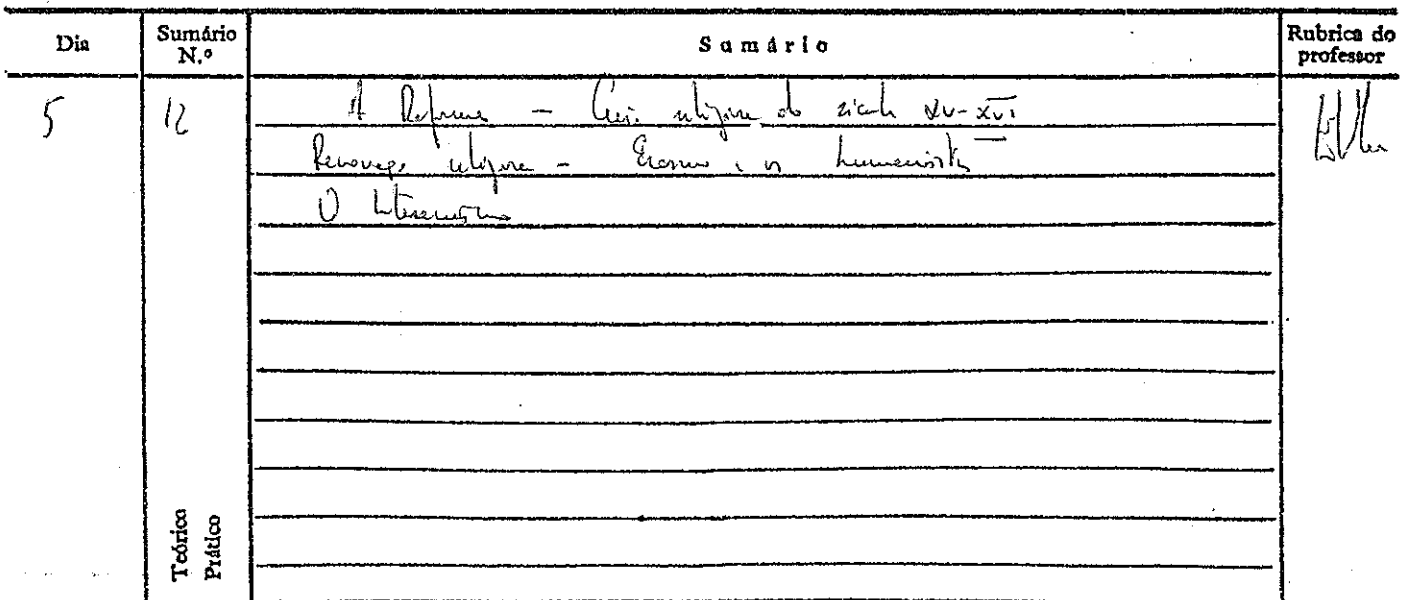 Dia
Sumário N.º
Sumário
Rubrica do professor
5
12
A Reforma – Crise religiosa do século XV-XVI
Renovação religiosa – Erasmo e os humanistas
O luteranismo
Teórico
Prático